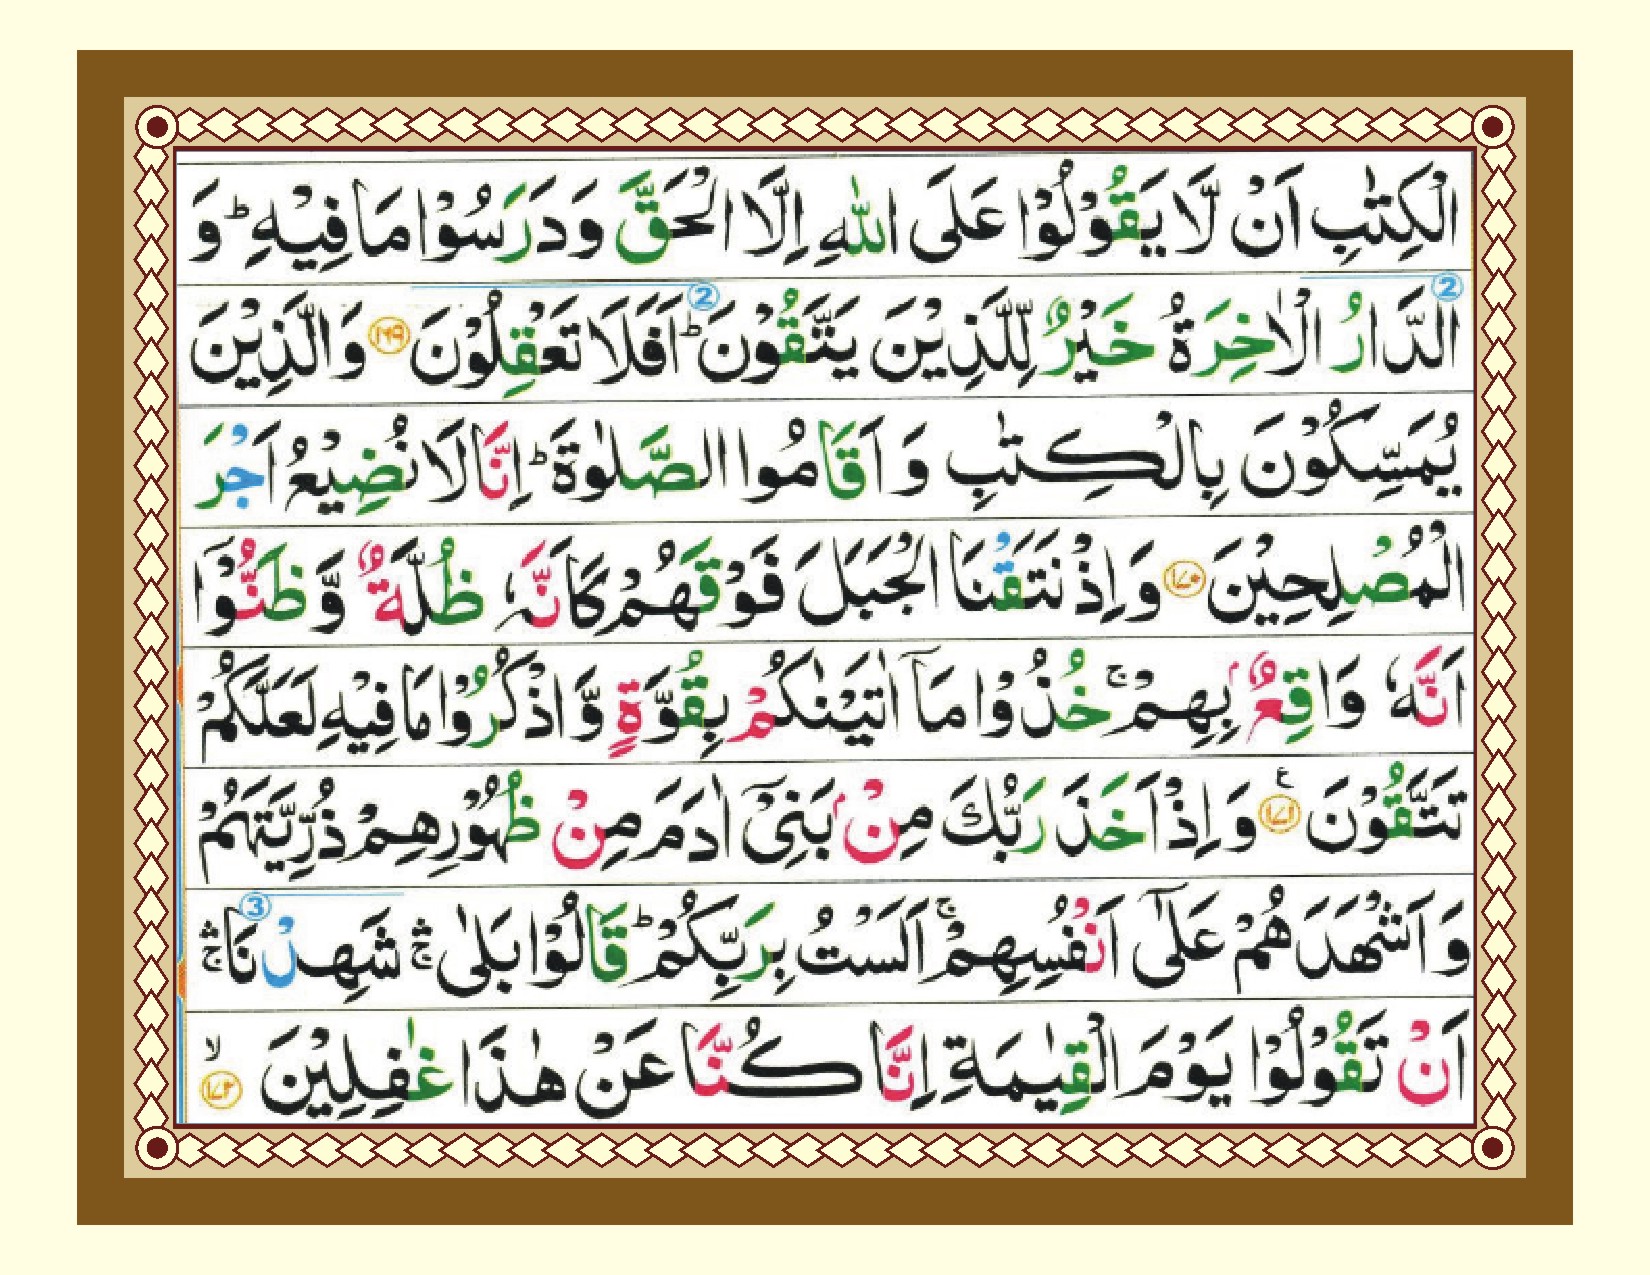 الْكِتٰبِ اَنْ لَّا يَقُوْلُوْا عَلَى اللّٰهِ اِلَّا الْحَقَّ وَدَرَسُوْا مَا فِيْهِ ؕ وَ
الدَّارُ الْاٰخِرَةُ خَيْرٌ لِّلَّذِيْنَ يَتَّقُوْنَ ؕ اَفَلَا تَعْقِلُوْنَ ﴿۱۶۹﴾ وَالَّذِيْنَ
يُمَسِّكُوْنَ بِالْكِتٰبِ وَ اَقَامُوا الصَّلٰوةَ ؕ اِنَّا لَا نُضِيْعُ اَجْرَ
الْمُصْلِحِيْنَ ﴿۱۷۰﴾ وَاِذْ نَتَقْنَا الْجَبَلَ فَوْقَهُمْ كَاَنَّهٗ ظُلَّةٌ وَّ ظَنُّوْۤا
اَنَّهٗ وَاقِعٌۢ بِهِمْ ۚ خُذُوْا مَاۤ اٰتَيْنٰكُمْ بِقُوَّةٍ وَّ اذْكُرُوْا مَا فِيْهِ لَعَلَّكُمْ
تَتَّقُوْنَ ﴿۱۷۱﴾ ع وَ اِذْ اَخَذَ رَبُّكَ مِنْۢ بَنِيْۤ اٰدَمَ مِنْ ظُهُوْرِهِمْ ذُرِّيَّتَهُمْ
وَ اَشْهَدَهُمْ عَلٰۤى اَنْفُسِهِمْ ۚ اَلَسْتُ بِرَبِّكُمْ ؕ قَالُوْا بَلٰى ۛۚ شَهِدْنَا ۛۚ
اَنْ تَقُوْلُوْا يَوْمَ الْقِيٰمَةِ اِنَّا كُنَّا عَنْ هٰذَا غٰفِلِيْنَ ﴿۱۷۲﴾ ۙ